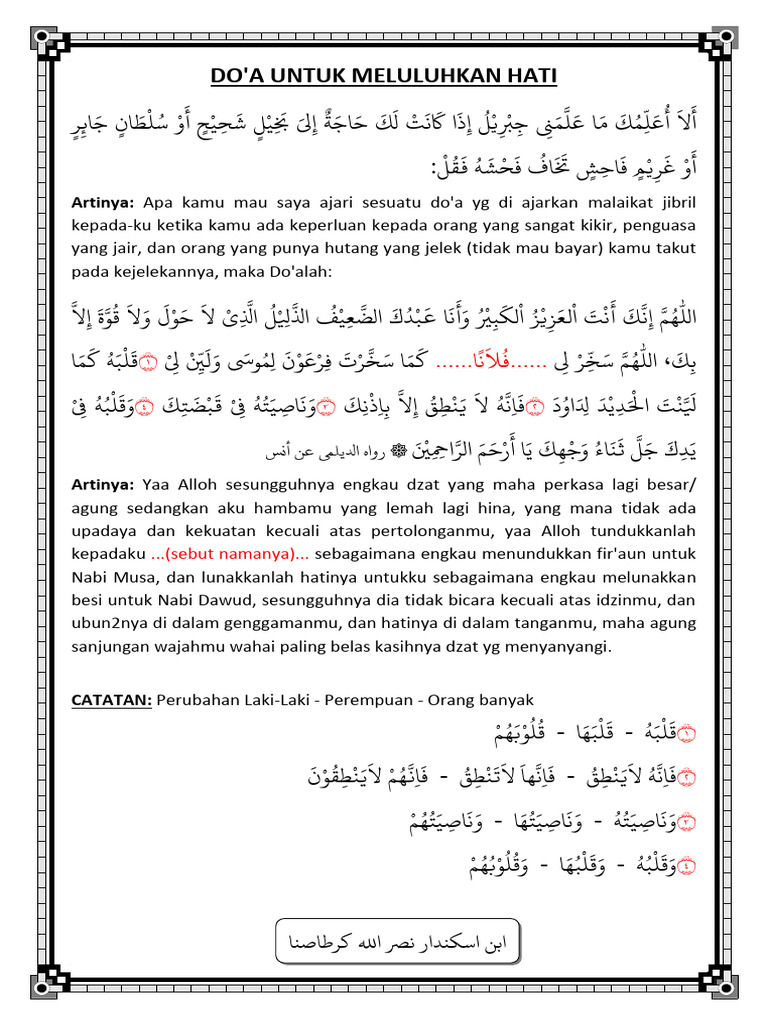 DO'A UNTUK MELULUHKAN HATI
أَلاَ أُعَلِّمُكَ مَا عَلَّمَنِى جِبْرِيْلُ إِذَا كَانَتْ لَكَ حَاجَةٌ إِلىَ بَخِيْلٍ شَحِيْحٍ أَوْ سُلْطَانٍ جَائِرٍ
أَوْ غَرِيْمٍ فَاحِشٍ تَخَافُ فَحْشَهُ فَقُلْ:
Artinya: Apa kamu mau saya ajari sesuatu do'a yg di ajarkan malaikat jibril
kepada-ku ketika kamu ada keperluan kepada orang yang sangat kikir, penguasa
yang jair, dan orang yang punya hutang yang jelek (tidak mau bayar) kamu takut
pada kejelekannya, maka Do'alah:
اللّٰهُمَّ إِنَّكَ أَنْتَ اْلعَزِيْزُ اْلكَبِيْرُ وَأَنَا عَبْدُكَ الضَّعِيْفُ الذَّلِيْلُ الَّذِىْ لاَ حَوْلَ وَلاَ قُوَّةَ إِلاَّ
بِكَ، اللّٰهُمَّ سَخِّرْ لِى ......فُلاَنًا...... كَمَا سَخَّرْتَ فِرْعَوْنَ لِمُوسَى وَلَيِّنْ لِىْ ۝١قَلْبَهُ كَمَا
لَيَّنْتَ الْحَدِيْدَ لِدَاوُدَ ۝٢فَاِنَّهُ لاَ يَنْطِقُ إِلاَّ بِاِذْنِكَ ۝٣وَنَاصِيَتُهُ فِىْ قَبْضَتِكَ ۝٤وَقَلْبُهُ فِىْ
يَدِكَ جَلَّ ثَنَاءُ وَجْهِكَ يَا أَرْحَمَ الرَّاحِمِيْنَ ۞ رواه الديلمى عن أنس
Artinya: Yaa Alloh sesungguhnya engkau dzat yang maha perkasa lagi besar/
agung sedangkan aku hambamu yang lemah lagi hina, yang mana tidak ada
upadaya dan kekuatan kecuali atas pertolonganmu, yaa Alloh tundukkanlah
kepadaku ...(sebut namanya)... sebagaimana engkau menundukkan fir'aun untuk
Nabi Musa, dan lunakkanlah hatinya untukku sebagaimana engkau melunakkan
besi untuk Nabi Dawud, sesungguhnya dia tidak bicara kecuali atas idzinmu, dan
ubun2nya di dalam genggamanmu, dan hatinya di dalam tanganmu, maha agung
sanjungan wajahmu wahai paling belas kasihnya dzat yg menyanyangi.
CATATAN: Perubahan Laki-Laki - Perempuan - Orang banyak
۝١قَلْبَهُ - قَلْبَهَا - قُلُوْبَهُمْ
۝٢فَاِنَّهُ لاَيَنْطِقُ - فَاِنَّهاَ لاَتَنْطِقُ - فَاِنَّهُمْ لاَيَنْطِقُوْنَ
۝٣وَنَاصِيَتُهُ - وَنَاصِيَتُهَا - وَنَاصِيَتُهُمْ
۝٤وَقَلْبُهُ - وَقَلْبُهَا - وَقُلُوْبُهُمْ
ابن اسكندار نصر الله كرطاصنا